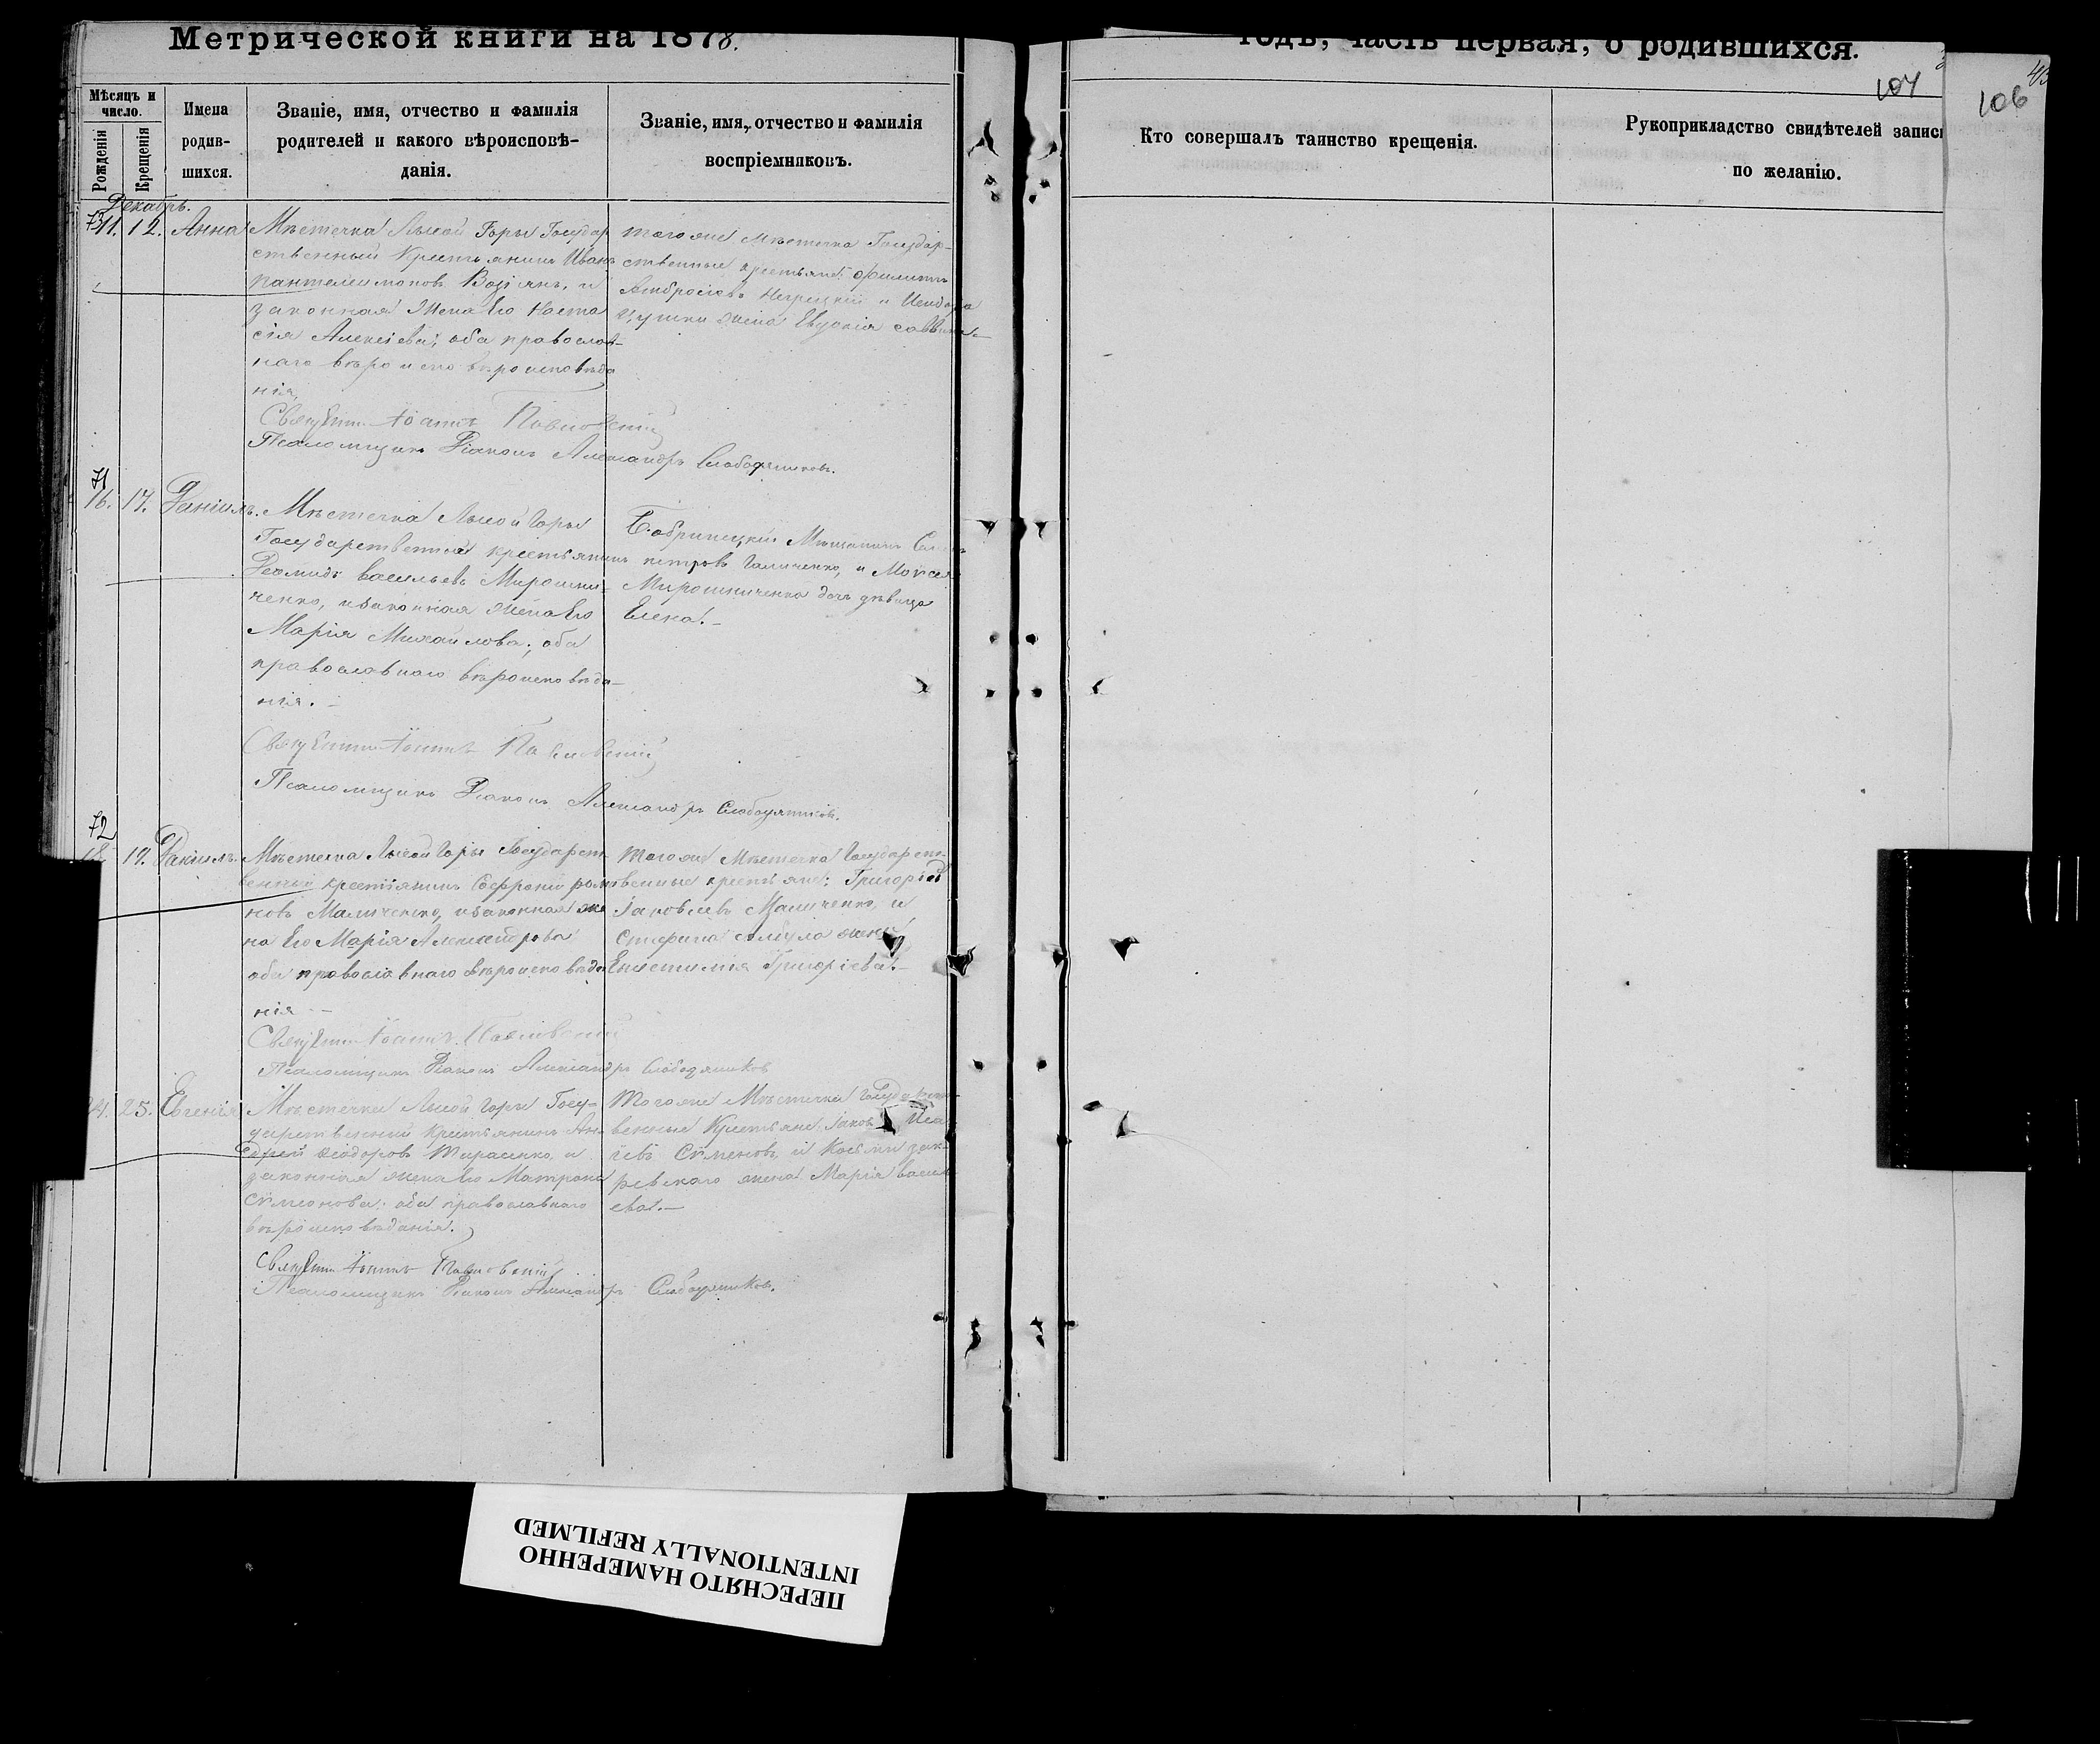 Метрической книги на 1878.
годъ, часть первая, о родившихся.
104
106
Мѣсяцъ и число.
Рожденія
Крещенія
Имена родив-шихся.
Званіе, имя, отчество и фамилія
родителей и какого вѣроисповѣ-
данія.
Званіе, имя, отчество и фамилія
воспріемниковъ.
Кто совершалъ таинство крещенія.
Рукоприкладство свидѣтелей записи
по желанію.
Декабрь.
11. 12. Анна
Мѣстечка Лысой Горы Государ
ственный Крестьянинъ Иванъ
Пантелеимоновъ Возіянъ, и
законная Жена Его Наста
сія Алексіева; оба православ-
наго вѣроисповѣда
нія,
тогоже мѣстечка Государ-
ственные крестьяне: Филиппъ
Амбросіевъ Негрецкій и
жена Евдокія
Священникъ Іоаннъ Павловскій
Псаломщикъ Діаконъ Александръ Слободяниковъ.
71
16. 17. Даніилъ.
Мѣстечка Лысой Горы
Государственный крестьянинъ
Деомидъ Васильевъ Мирошни-
ченко, и законная Жена Его
Марія Михайлова; оба
православнаго вѣроисповѣда-
нія.-
Бобринецкій Мѣщанинъ
петровъ Галиченко, и
Мирошниченка дочь дѣвица
Елена.-
Священникъ Іоаннъ Павловскій
Псаломщикъ Діаконъ Александръ Слободяниковъ.
72
18 19. Даніилъ.
Мѣстечка Лысой Горы Государст-
венный крестіянинъ Софроній рома
новъ Маличенко, и законная же
на Его Марія Александрова
оба православнаго вѣроисповѣда
нія -
тогоже Мѣстечка Государст-
венные крестьяне: Григорій
Іаковлевъ Маличенко, и
Стефана жена
Григоріева.-
Священникъ Іоаннъ Павловскій
Псаломщикъ Діаконъ Александръ Слободяниковъ
24. 25. Евгенія
Мѣстечка Лысой Горы Госу-
дарственный крестьянинъ Ан-
дрей Ѳеодоровъ Тарасенко, и
законная жена Его Матрона
Сѵмеонова; оба православнаго
вѣроисповѣданія.
Тогоже Мѣстечка Государст-
венные Крестьяне: Іаковъ
Сѵменовъ, и Косьмы
жена Марія Василі
ева.-
Священникъ Іоаннъ Павловскій
Псаломщикъ Діаконъ Александръ Слободяниковъ.
ПЕРЕСНЯТО НАМЕРЕННО
INTENTIONALLY REFILMED